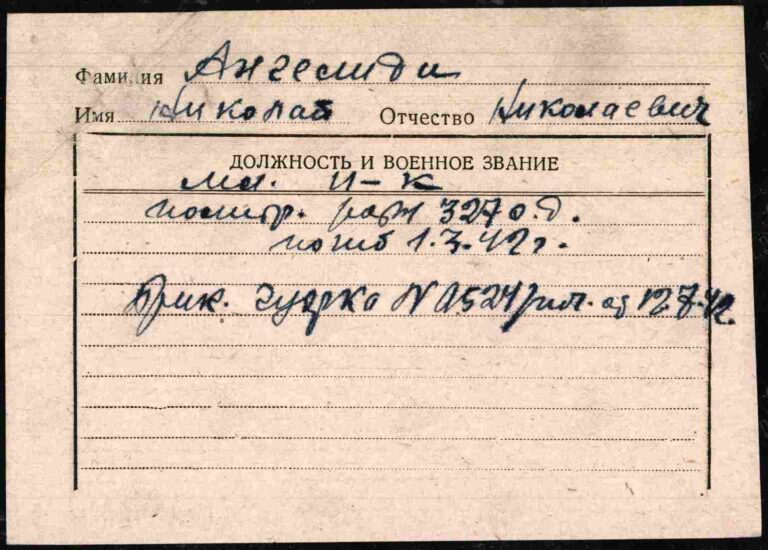 Фамилия Ангелиди
Имя Николай Отчество Николаевич
ДОЛЖНОСТЬ И ВОЕННОЕ ЗВАНИЕ
мл. п-к
политр. 327 с.д.
погиб 1.3.42 г.
Прик. № 0524 от 12.7.42